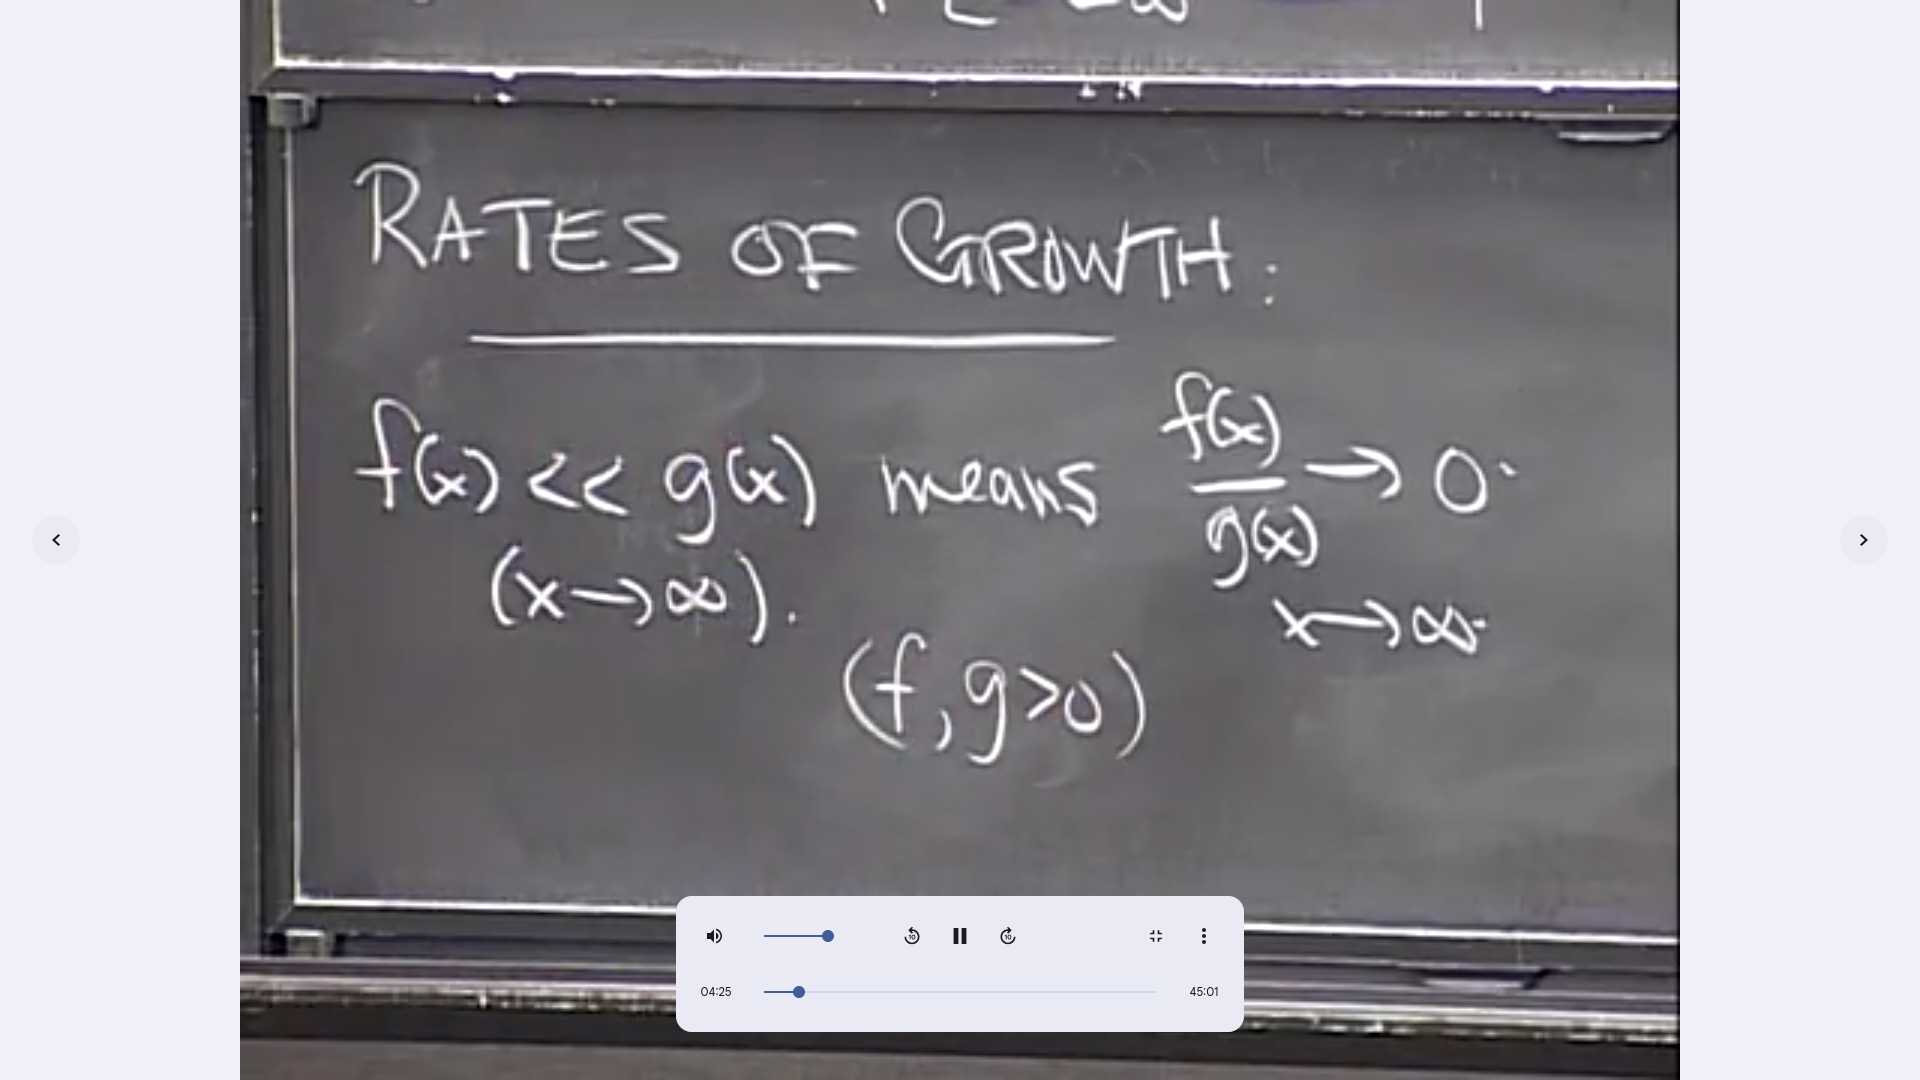 RATES OF GROWTH:
f(x) << g(x) means f(x)/g(x) → 0
(x→∞). x→∞
(f, g>0)
10 10
04:25 45:01